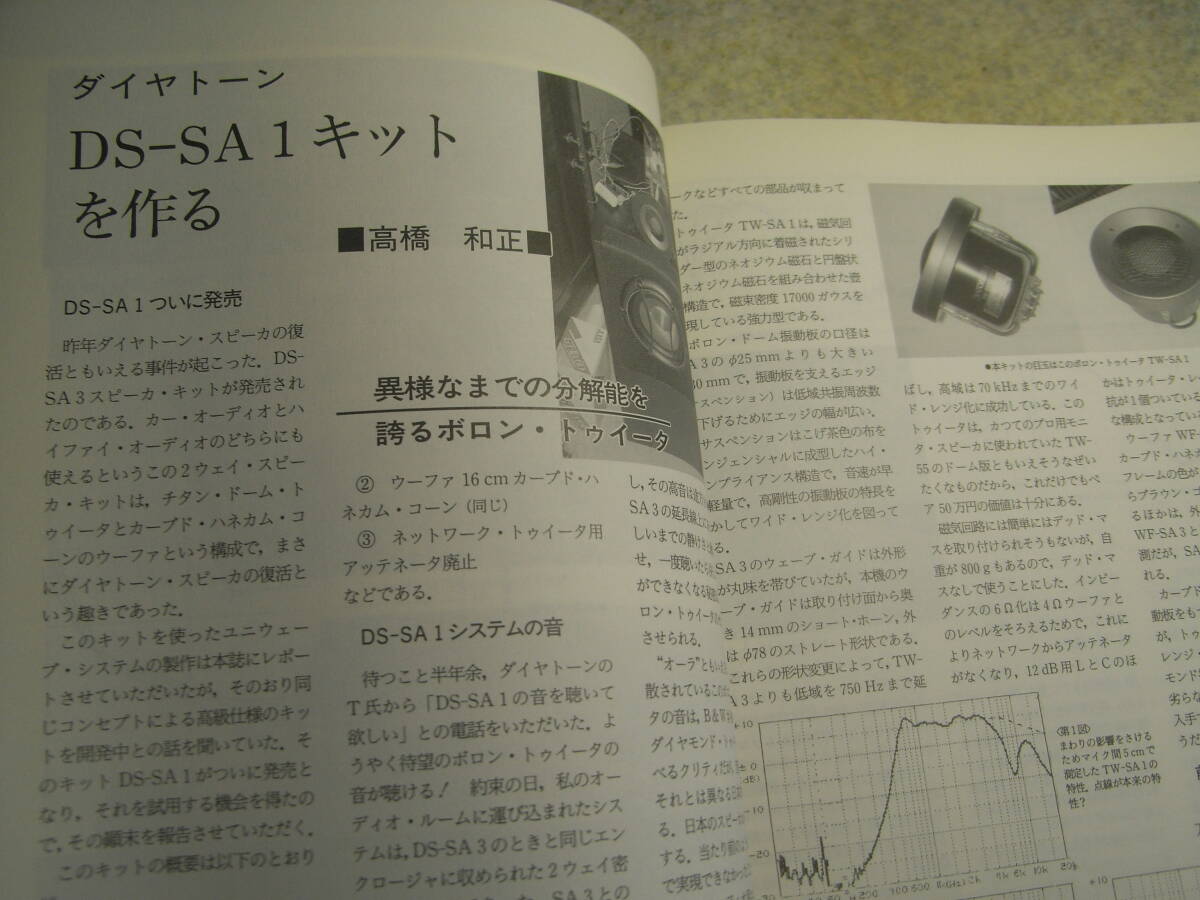 ダイヤトーン
DS-SA1キット
を作る
■高橋 和正■
DS-SA1ついに発売
昨年ダイヤトーン・スピーカの復
活ともいえる事件が起こった．DS-
SA3スピーカ・キットが発売され
たのである．カー・オーディオとハ
イファイ・オーディオのどちらにも
使えるというこの2ウェイ・スピー
カ・キットは，チタン・ドーム・ト
ゥイータとカーブド・ハネカム・コ
ーンのウーファという構成で，まさ
にダイヤトーン・スピーカの復活と
いう趣きであった．
このキットを使ったユニウェー
ブ・システムの製作は本誌にレポー
トさせていただいたが，そのおり同
じコンセプトによる高級仕様のキッ
トを開発中との話を聞いていた．そ
のキットDS-SA1がついに発売と
なり，それを試用する機会を得たの
で，その顚末を報告させていただく．
このキットの概要は以下のとおり
異様なまでの分解能を
誇るボロン・トゥイータ
② ウーファ 16 cm カーブド・ハ
ネカム・コーン（同じ）
③ ネットワーク・トゥイータ用
アッテネータ廃止
などである．
DS-SA1システムの音
待つこと半年余，ダイヤトーンの
T氏から「DS-SA1の音を聴いて
欲しい」との電話をいただいた．よ
うやく待望のボロン・トゥイータの
音が聴ける！ 約束の日，私のオー
ディオ・ルームに運び込まれたシス
テムは，DS-SA3のときと同じエン
クロージャに収められた2ウェイ密
し，その高音は
SA3の延長線
しいまでの静けさ
せ，一度聴いたら
ができなくなる
ロン・トゥイータ
させられる．
“オーラ”とも
散されているこの
タの音は，B&W
ダイヤモンド・
べるクリティ
それとは異なる
る．日本のスピー
する．当たり前
で実現できなかっ
ークなどすべての部品が収まって
た．
トゥイータTW-SA1は，磁気回
がラジアル方向に着磁されたシリ
ダー型のネオジウム磁石と円盤状
ネオジウム磁石を組み合わせた壺
構造で，磁束密度17000ガウスを
現している強力型である．
ボロン・ドーム振動板の口径は
A3のφ25 mmよりも大きい
30 mmで，振動板を支えるエッジ
スペンション）は低域共振周波数
下げるためにエッジの幅が広い．
サスペンションはこげ茶色の布を
ンジェンシャルに成型したハイ・
ンプライアンス構造で，音速が早
軽量で，高剛性の振動板の特長を
かしてワイド・レンジ化を図って
る．
SA3のウェーブ・ガイドは外形
が丸味を帯びていたが，本機のウ
ーブ・ガイドは取り付け面から奥
き14 mmのショート・ホーン，外
はφ78のストレート形状である．
これらの形状変更によって，TW-
A3よりも低域を750 Hzまで延
●本キットの目玉はこのボロン・トゥイータTW-SA1
ばし，高域は70 kHzまでのワイ
ド・レンジ化に成功している．この
トゥイータは，かつてのプロ用モニ
タ・スピーカに使われていたTW-
55のドーム版ともいえそうなぜい
たくなものだから，これだけでもペ
ア50万円の価値は十分にある．
磁気回路には簡単にはデッド・マ
スを取り付けられそうもないが，自
重が800 gもあるので，デッド・マ
スなしで使うことにした．インピー
ダンスの6Ω化は4Ωウーファと
のレベルをそろえるためで，これに
よりネットワークからアッテネータ
がなくなり，12 dB用LとCのほ
かはトゥイータ・レ
抗が1個ついている
な構成となってい
ウーファWF-
カーブド・ハネカ
フレームの色が
らブラウン・ゴ
るほかは，外
WF-SA3と
測だが，SA
れる．
カーブド
動板をも
が，トゥ
レンジ・
モンド
劣らな
入手
うだ
〈第1図〉
まわりの影響をさける
ためマイク間5cmで
測定したTW-SA1の
特性．点線が本来の特
性？
+10
± 0
(dB)
-10
-20
200
5k
10k
20k
+10